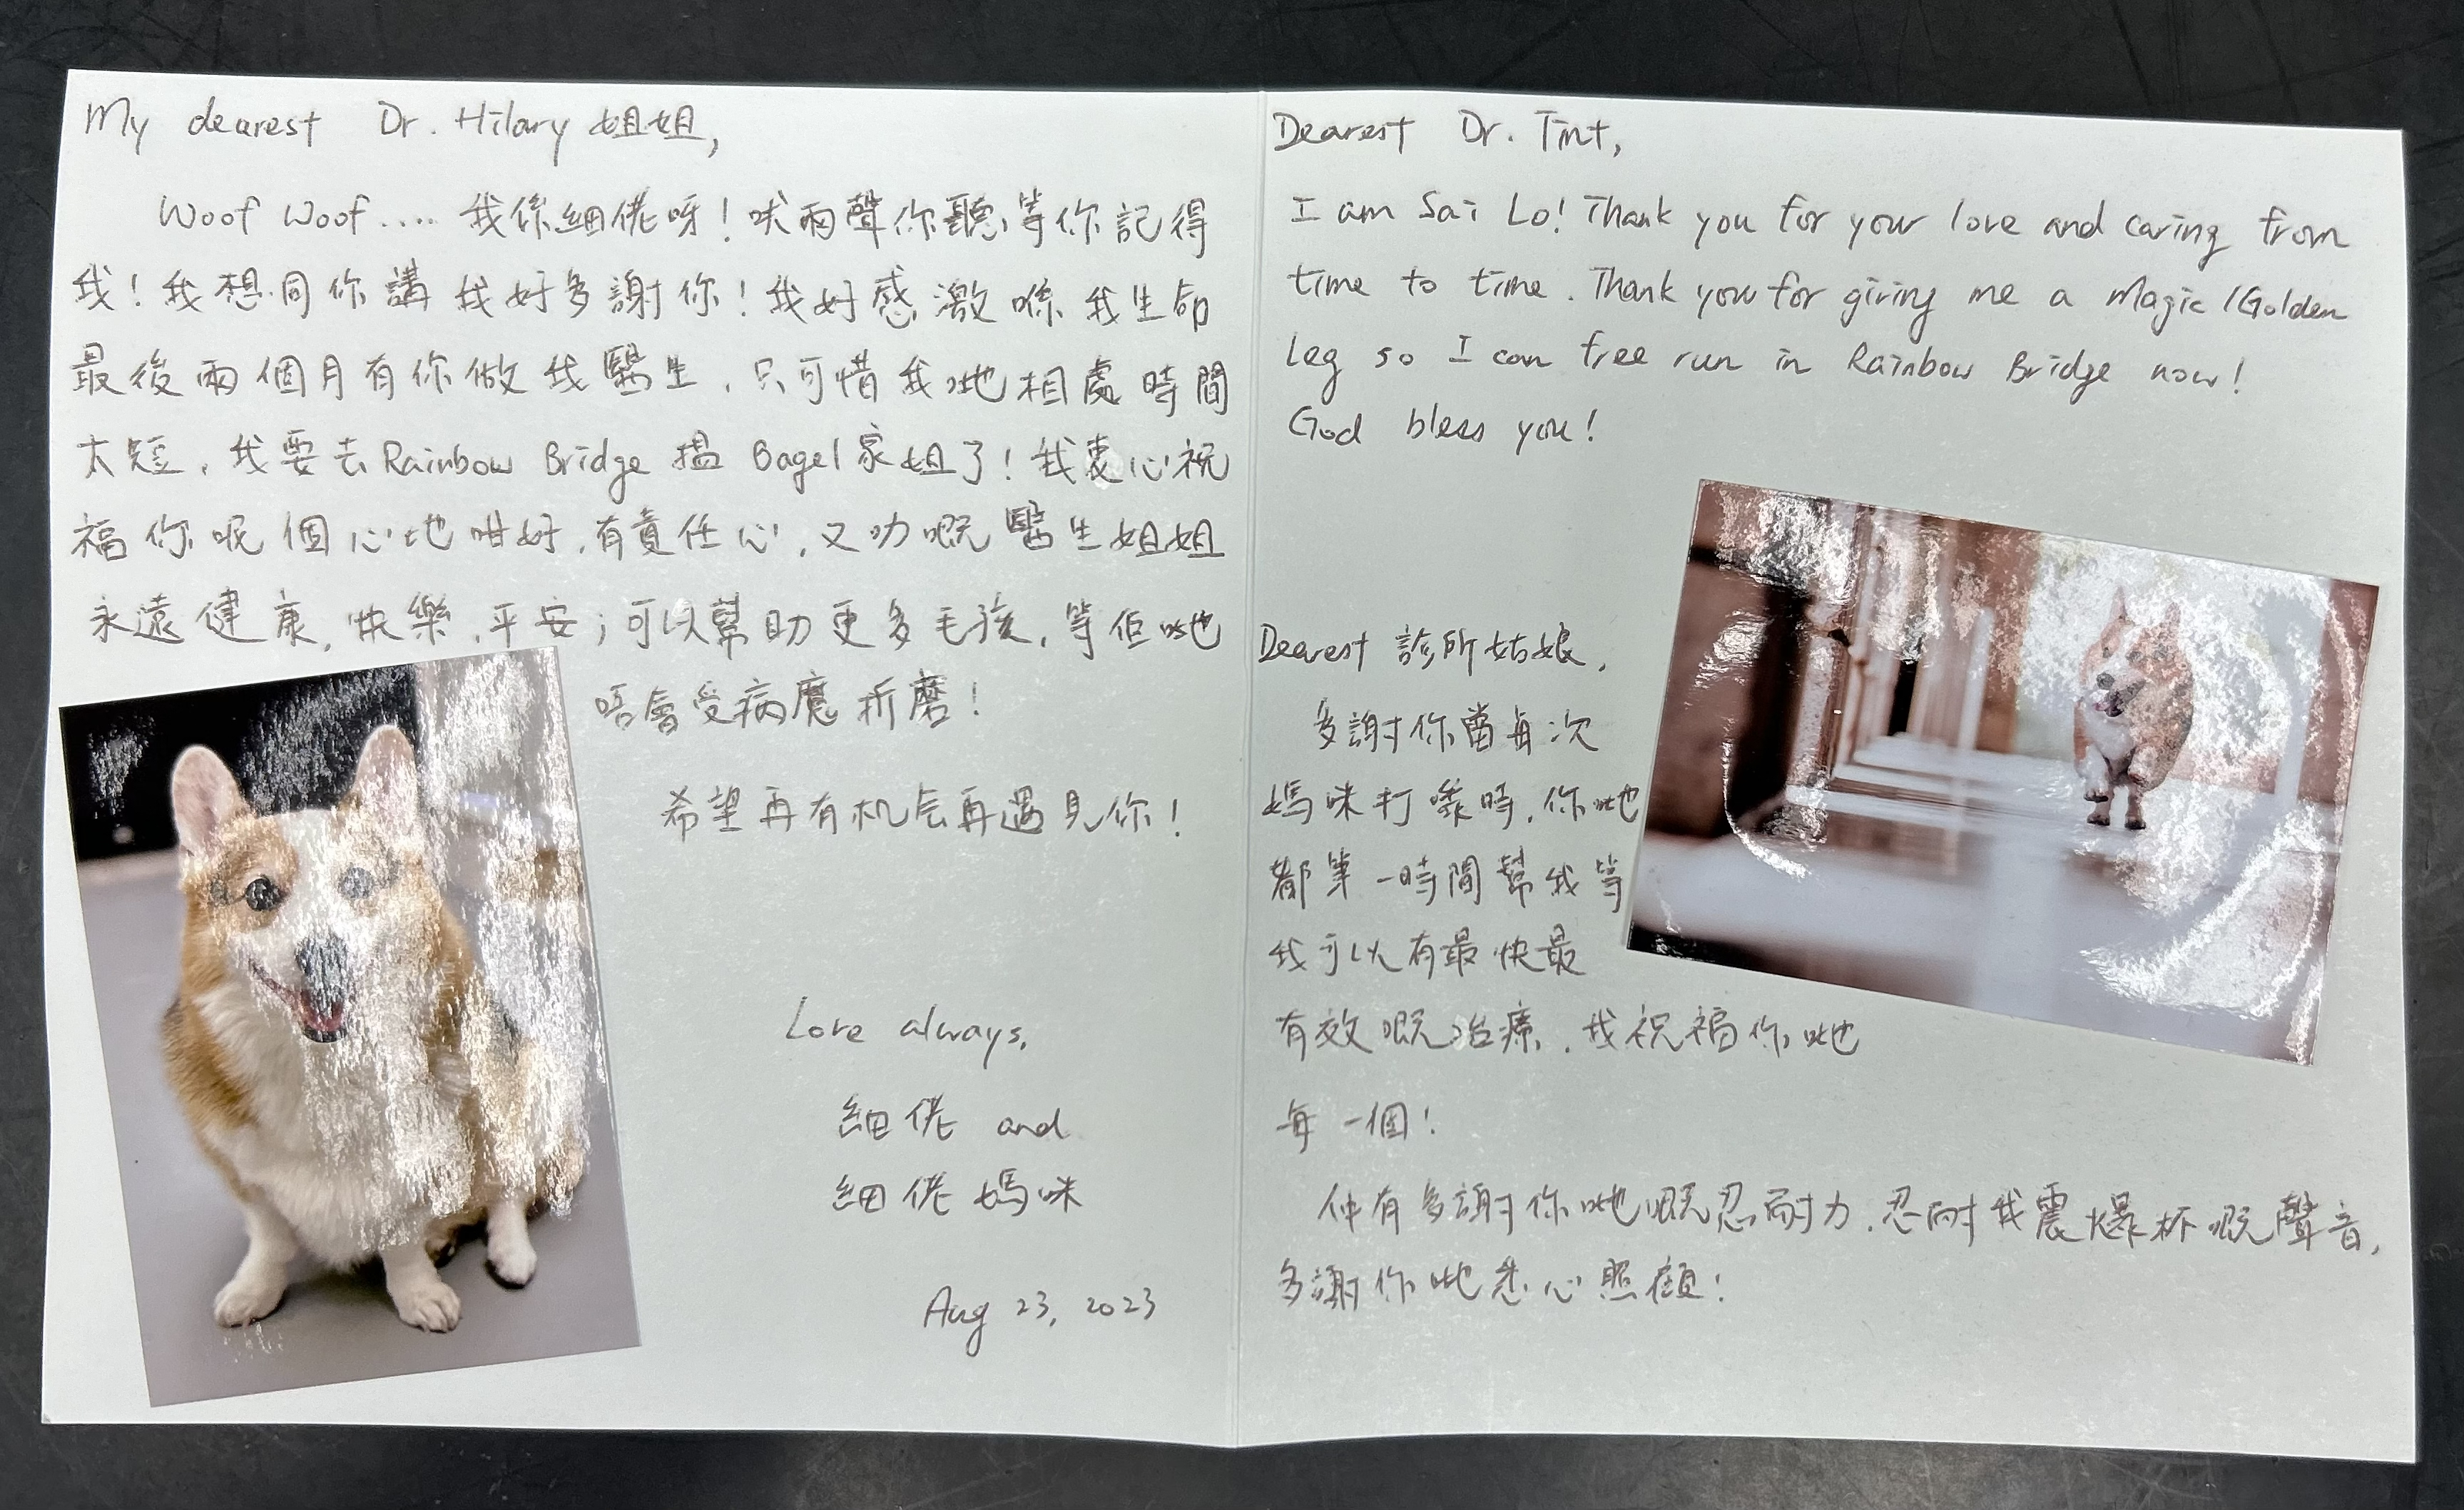 My dearest Dr. Hilary 姐姐,
Woof Woof.... 我係細佬呀！吠兩聲你聽等你記得
我！我想同你講我好多謝你！我好感激喺我生命
最後兩個月有你做我醫生，只可惜我哋相處時間
太短，我要去Rainbow Bridge 搵 Bagel家姐了！我衷心祝
福你呢個心地咁好，有責任心，又叻嘅醫生姐姐
永遠健康，快樂，平安；可以幫助更多毛孩，等佢哋
唔會受病魔折磨！
希望再有机会再遇見你！
Love always,
細佬 and
細佬媽咪
Aug 23, 2023
Dearest Dr. Tint,
I am Sai Lo! Thank you for your love and caring from
time to time. Thank you for giving me a Magic/Golden
Leg so I can free run in Rainbow Bridge now!
God bless you!
Dearest 診所姑娘，
多謝你當每次
媽咪打嚟時，你哋
都第一時間幫我等
我可以有最快最
有效嘅治療，我祝福你哋
每一個！
仲有多謝你哋嘅忍耐力，忍耐我震爆杯嘅聲音，
多謝你哋悉心照顧！